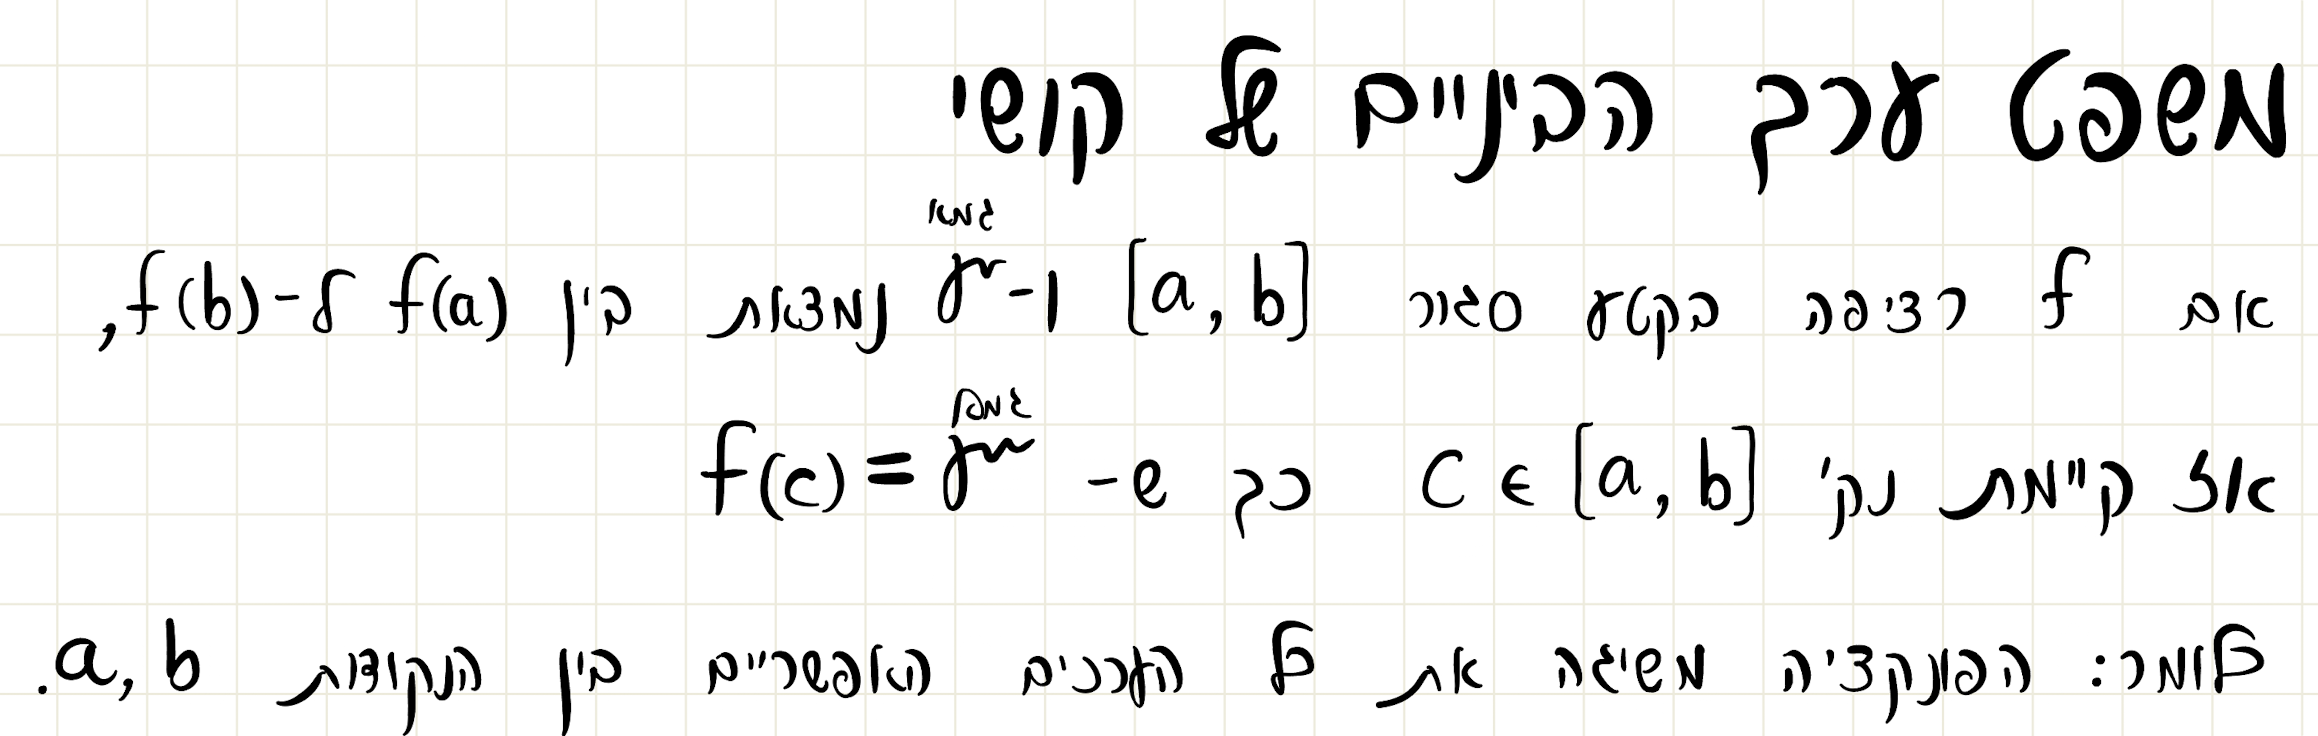 משפט ערך הביניים של קושי
גמא
אם f רציפה בקטע סגור [a, b] ו-γ נמצאת בין f(a) ל-f(b),
גמא
אז קיימת נק' c ∈ [a, b] כך ש- f(c) = γ
כלומר: הפונקציה משיגה את כל הערכים האפשריים בין הנקודות a, b.